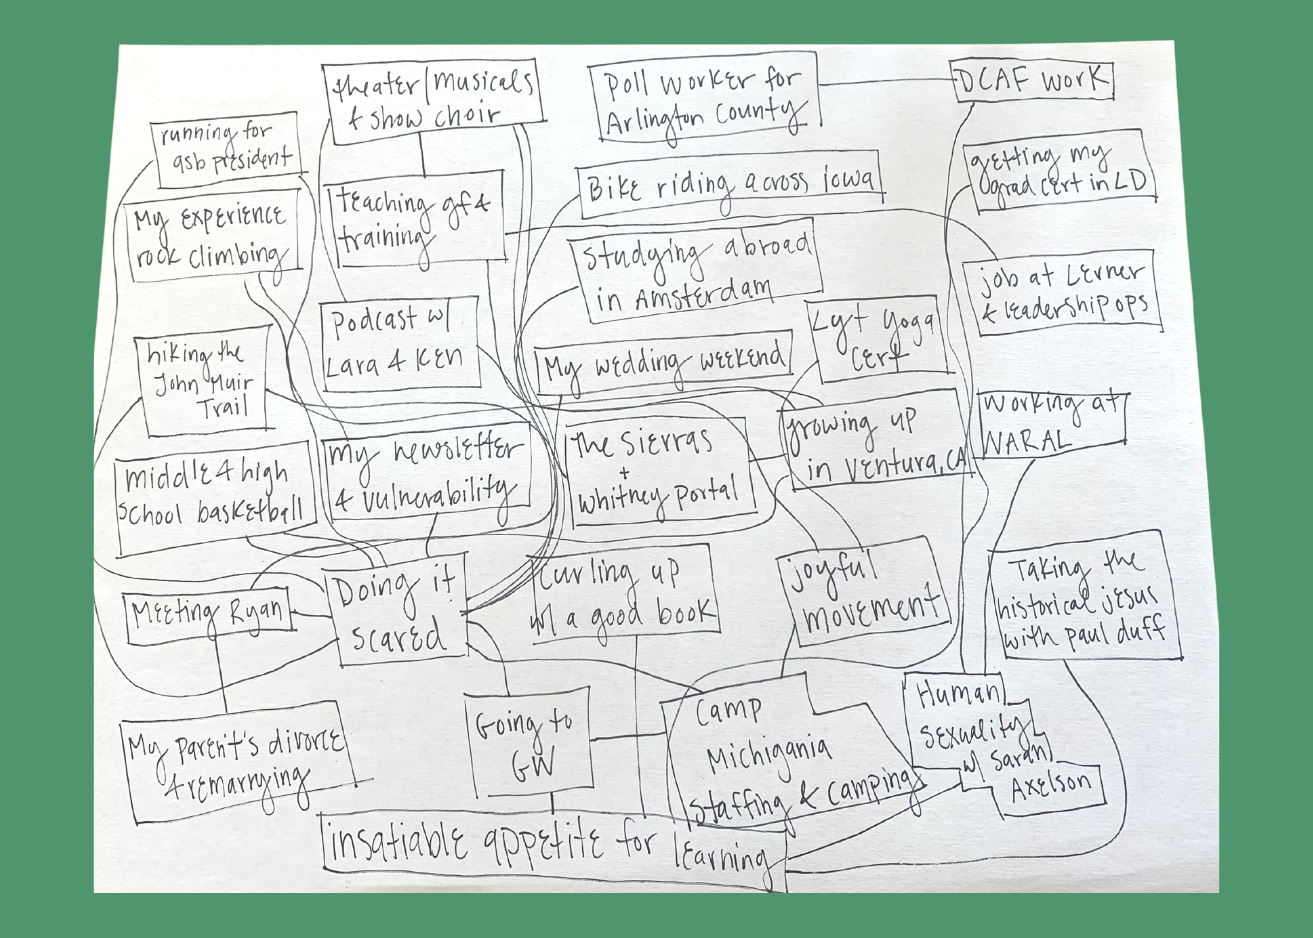 theater/musicals
& show choir
Poll worker for
Arlington County
DCAF work
running for
asb president
getting my
grad cert in LD
My experience
rock climbing
teaching gf &
training
Bike riding across iowa
Studying abroad
in Amsterdam
job at Lerner
& leadership ops
Podcast w/
Lara & Ken
Lyt yoga
cert
hiking the
John Muir
Trail
My wedding weekend
growing up
in Ventura, CA
Working at
NARAL
middle & high
school basketball
my newsletter
& vulnerability
The Sierras
+
Whitney Portal
Doing it
scared
Curling up
w/ a good book
joyful
movement
Taking the
historical jesus
with paul duff
Meeting Ryan
My parent's divorce
& remarrying
Going to
GW
Camp
Michigania
staffing & camping
Human
Sexuality
w/ Sarah
Axelson
insatiable appetite for learning